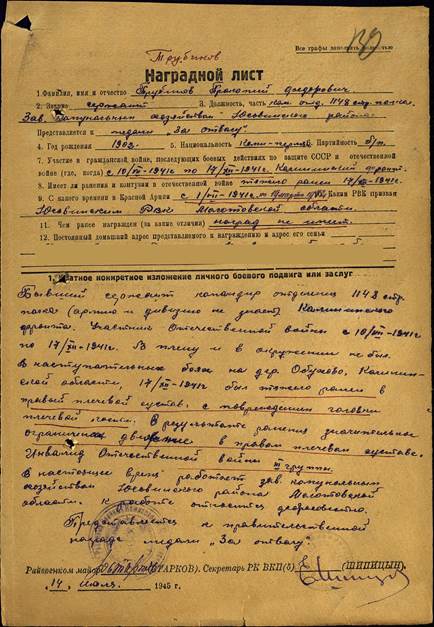 Трубинов
Все графы заполнять полностью
Наградной лист
1. Фамилия, имя и отчество Трубинов Прокопий Федорович.
2. Звание сержант 3. Должность, часть ком. отд. 1148 стр. полка.
Зав. Коммунальным хозяйством Юсьвинского района
Представляется к медали "За отвагу"
4. Год рождения 1903 5. Национальность Коми-пермяк Партийность б/п
7. Участие в гражданской войне, последующих боевых действиях по защите СССР и отечественной
войне (где, когда) с 10/XII-1941г по 17/XII-1941г. Калининский фронт.
8. Имеет ли ранения и контузии в отечественной войне тяжело ранен 17/XII-1941г.
9. С какого времени в Красной Армии Каким РВК призван
Юсьвинским РВК Молотовской области.
11. Чем ранее награжден (за какие отличия) наград не имеет.
12. Постоянный домашний адрес представляемого к награждению и адрес его семьи
1. Краткое конкретное изложение личного боевого подвига или заслуг
Бывший сержант командир отделения 1148 стр.
полка (армию и дивизию не знает) Калининского
фронта. Участник Отечественной войны с 10/XII-1941г
по 17/XII-1941г. В плену и в окружении не был.
В наступательных боях на дер. Обухово, Калинин-
ской области, 17/XII-1941г был тяжело ранен в
правый плечевой сустав, с повреждением головки
плечевой кости. В результате ранения значительное
ограничение движение в правом плечевом суставе.
Инвалид Отечественной войны III группы.
В настоящее время работает зав. коммунальным
хозяйством Юсьвинского района Молотовской
области. К работе относится добросовестно.
Представляется к правительственной
награде медали "За отвагу".
Райвоенком майор (ТАРКОВ). Секретарь РК ВКП(б) (ШИПИЦЫН).
14 июля 1945 г.